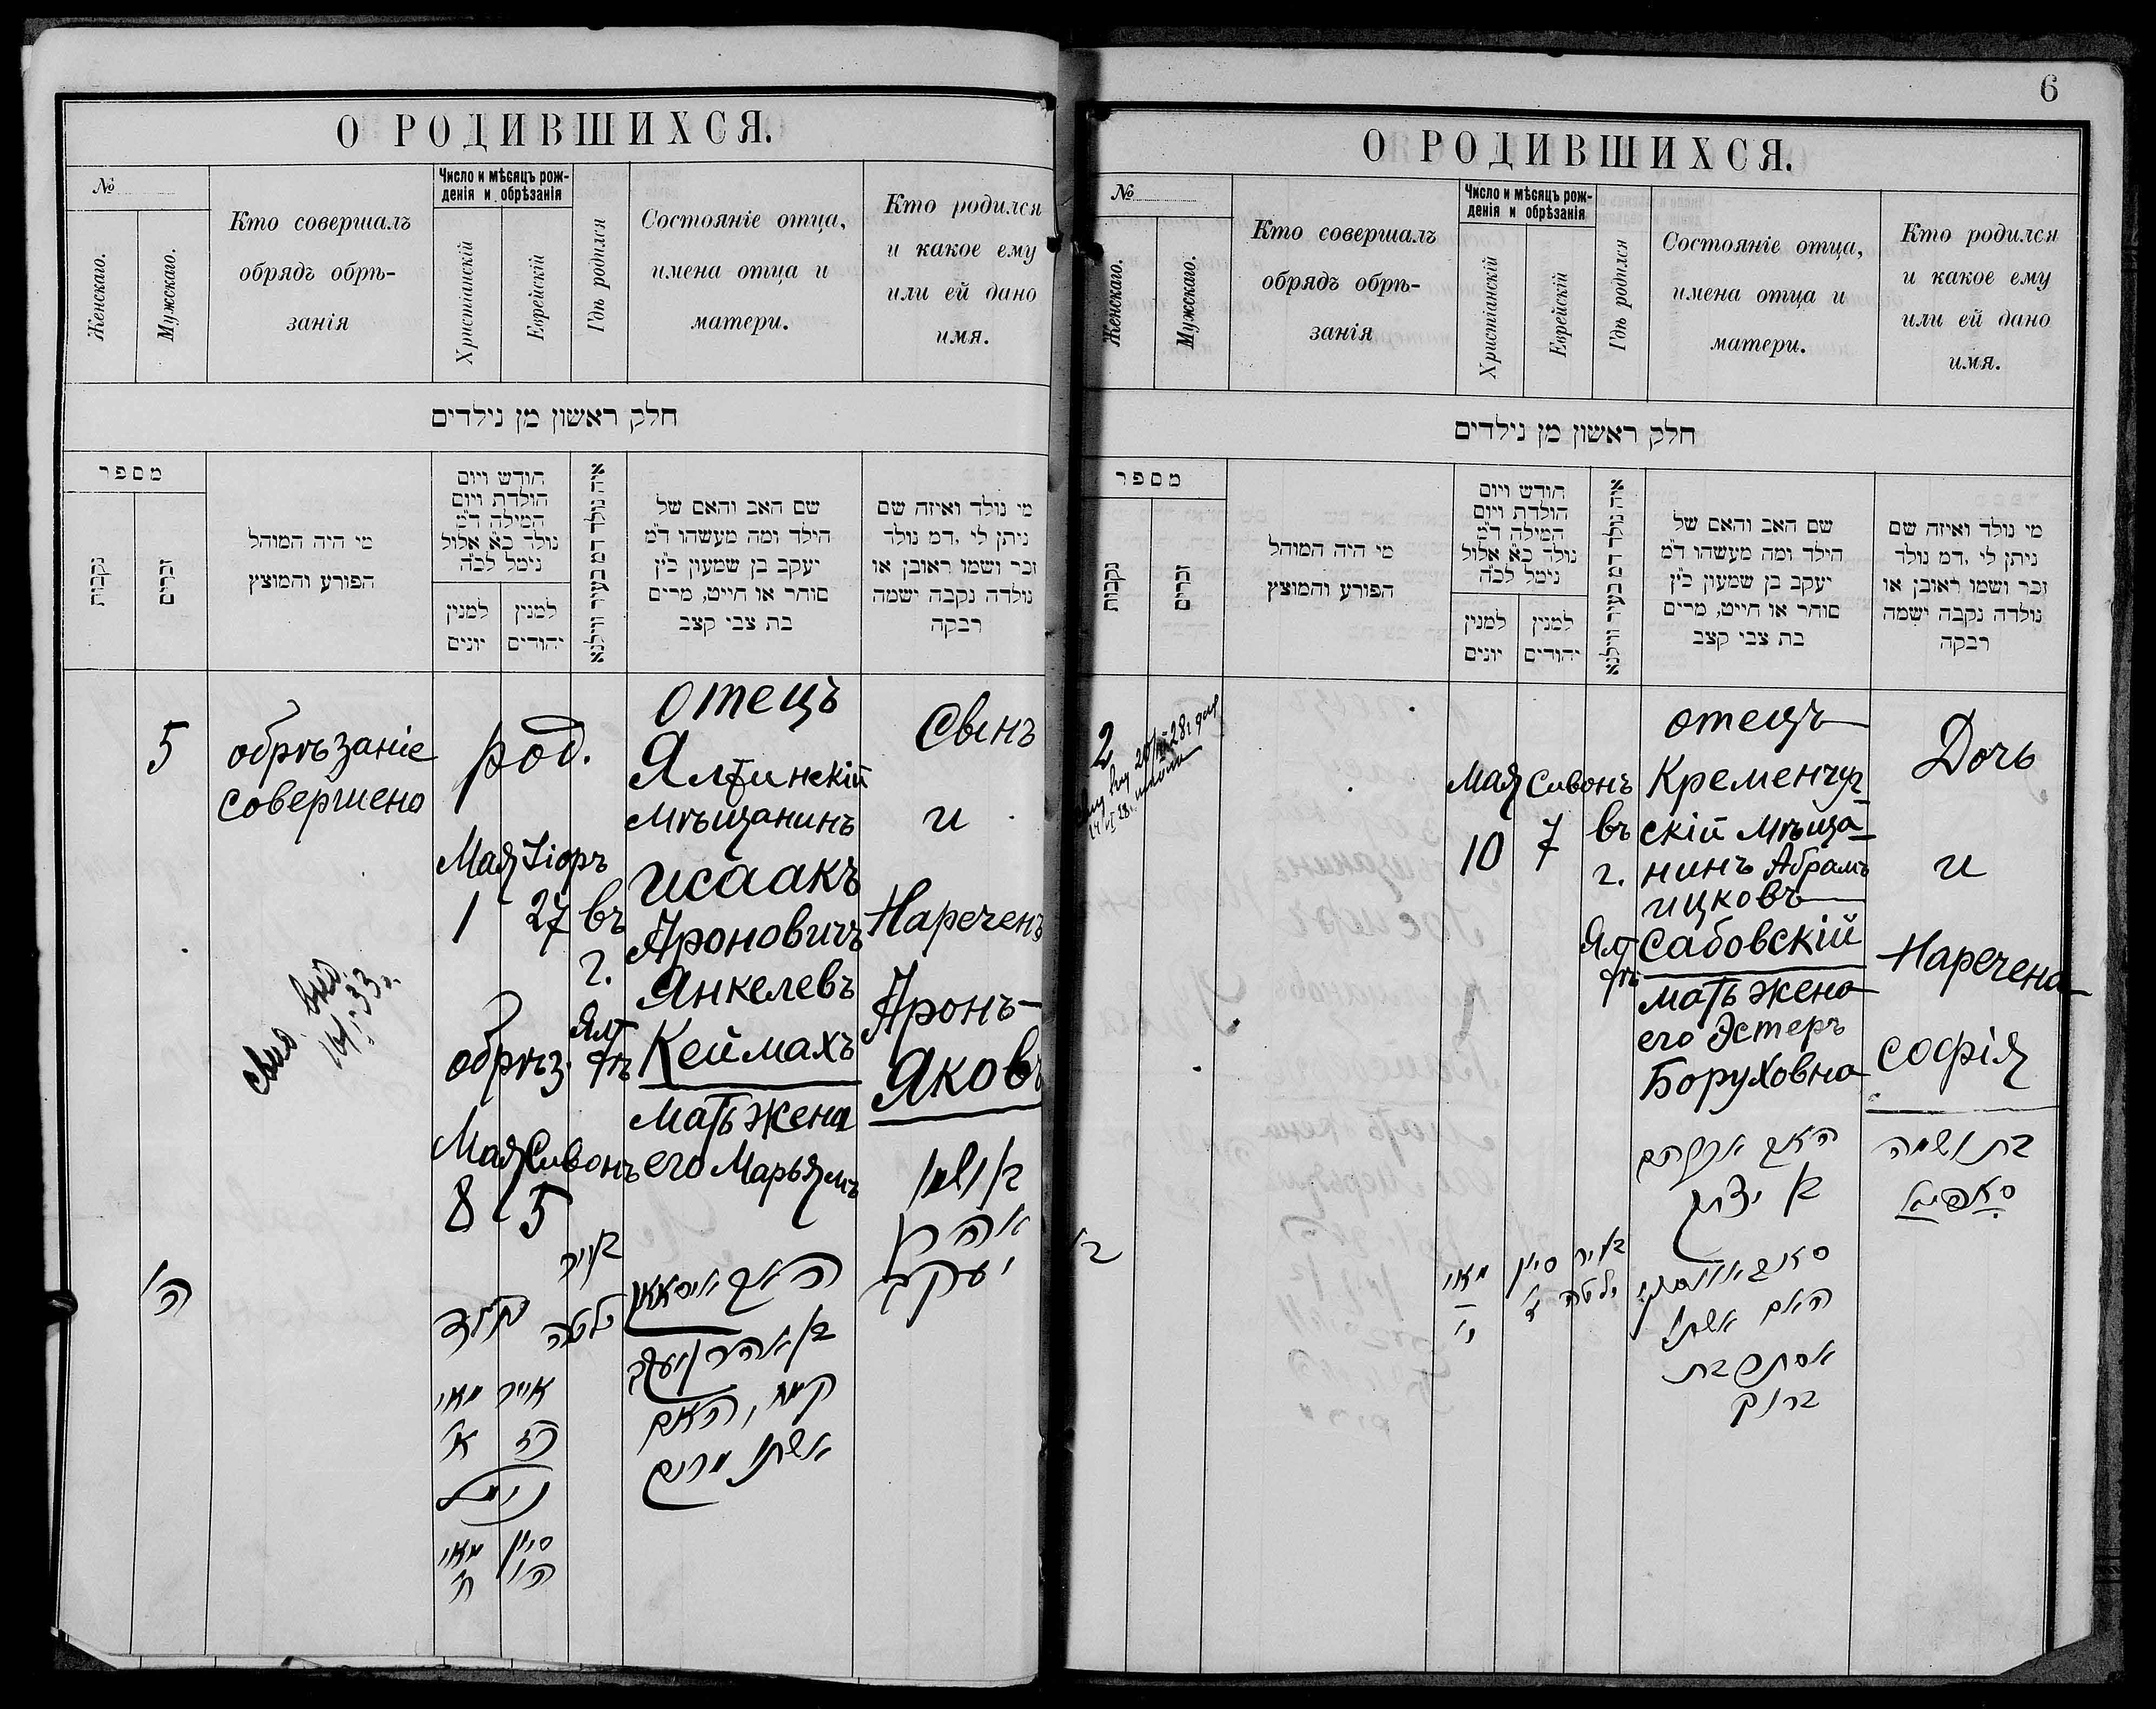 О РОДИВШИХСЯ.
№
Женскаго.
Мужскаго.
Кто совершалъ
обрядъ обрѣ-
занія
Число и мѣсяцъ рож-
денія и обрѣзанія
Христіанскій
Еврейскій
Гдѣ родился
Состояніе отца,
имена отца и
матери.
Кто родился
и какое ему
или ей дано
имя.
חלק ראשון מן נילדים
מספר
נקבות
זכרים
מי היה המוהל
הפורע והמוצץ
חודש ויום
הולדת ויום
המילה ד"מ
נולד כ"א אלול
נימל לכ"ה
למנין
יונים
למנין
יהודים
איה נולד דמ בעיר ווילנא
שם האב והאם של
הילד ומה מעשהו ד"מ
יעקב בן שמעון כ"ץ
סוחר או חייט, מרים
בת צבי קצב
מי נולד ואיזה שם
ניתן לי ,דמ נולד
זכר ושמו ראובן או
נולדה נקבה ישמה
רבקה
5
обрѣзаніе
совершено
род.
Мая Іоръ
1 27
въ
г.
Ял
тѣ
обрѣз.
Мая Сивонъ
8 5
отецъ
Ялтинскій
мѣщанинъ
Исаакъ
Ароновичъ
Янкелевъ
Кеймахъ
мать жена
его Марьямъ
Сынъ
и
Нареченъ
Аронъ-
Яковъ
14/I 33г.
בן ושמו
אהרן
יעקב
ה'
בעיר
ילטה
נולד
מאי אייר
א' כז
נימול
מאי סיון
ח' ה'
האב אייסאאק
בן אהרן יעקב
קימח, האם
אשתו מרים
6
О РОДИВШИХСЯ.
№
Женскаго.
Мужскаго.
Кто совершалъ
обрядъ обрѣ-
занія
Число и мѣсяцъ рож-
денія и обрѣзанія
Христіанскій
Еврейскій
Гдѣ родился
Состояніе отца,
имена отца и
матери.
Кто родился
и какое ему
или ей дано
имя.
חלק ראשון מן נילדים
מספר
נקבות
זכרים
מי היה המוהל
הפורע והמוצץ
חודש ויום
הולדת ויום
המילה ד"מ
נולד כ"א אלול
נימל לכ"ה
למנין
יונים
למנין
יהודים
איה נולד דמ בעיר ווילנא
שם האב והאם של
הילד ומה מעשהו ד"מ
יעקב בן שמעון כ"ץ
סוחר או חייט, מרים
בת צבי קצב
מי נולד ואיזה שם
ניתן לי ,דמ נולד
זכר ושמו ראובן או
נולדה נקבה ישמה
רבקה
2
Мая Сивонъ
10 7
въ
г.
Ял
тѣ
отецъ
Кременчуг-
скій мѣща-
нинъ Абрамъ
Ицковъ
Сабовскій
мать жена
его Эстеръ
Боруховна
Дочь
и
Наречена
Софія
בת ושמה
ב'
מאי סיון בעיר
י' ז' ילטה
האב אברהם
בן יצחק
האם אשתו
אסתר בת
ברוך